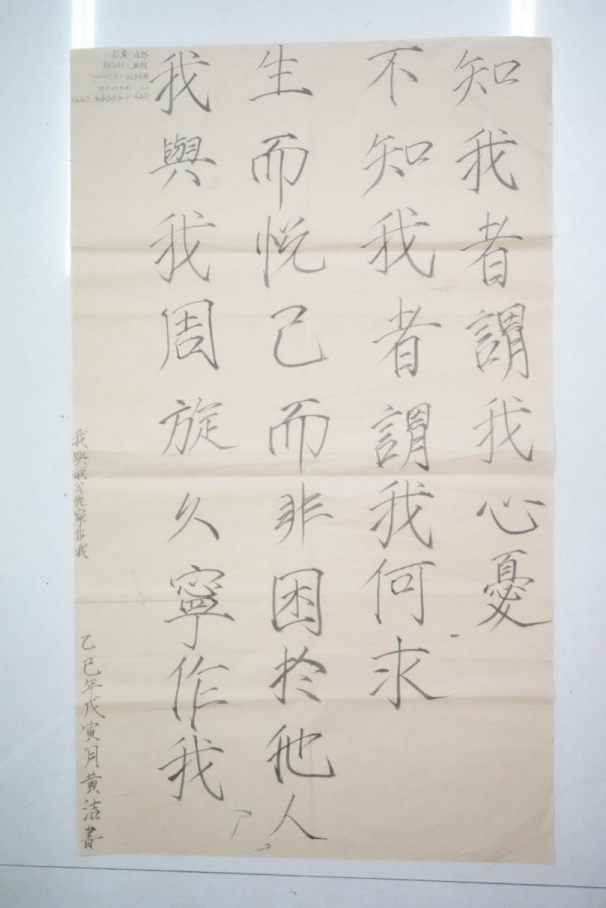 知我者謂我心憂
不知我者謂我何求
生而悅己而非困於他人
我與我周旋久寧作我
我與我周旋寧作我
乙巳年戊寅月黃洁書